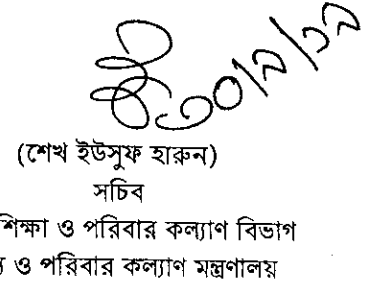 ৩০/৯/১৯
(শেখ ইউসুফ হারুন)
সচিব
শিক্ষা ও পরিবার কল্যাণ বিভাগ
ও পরিবার কল্যাণ মন্ত্রণালয়